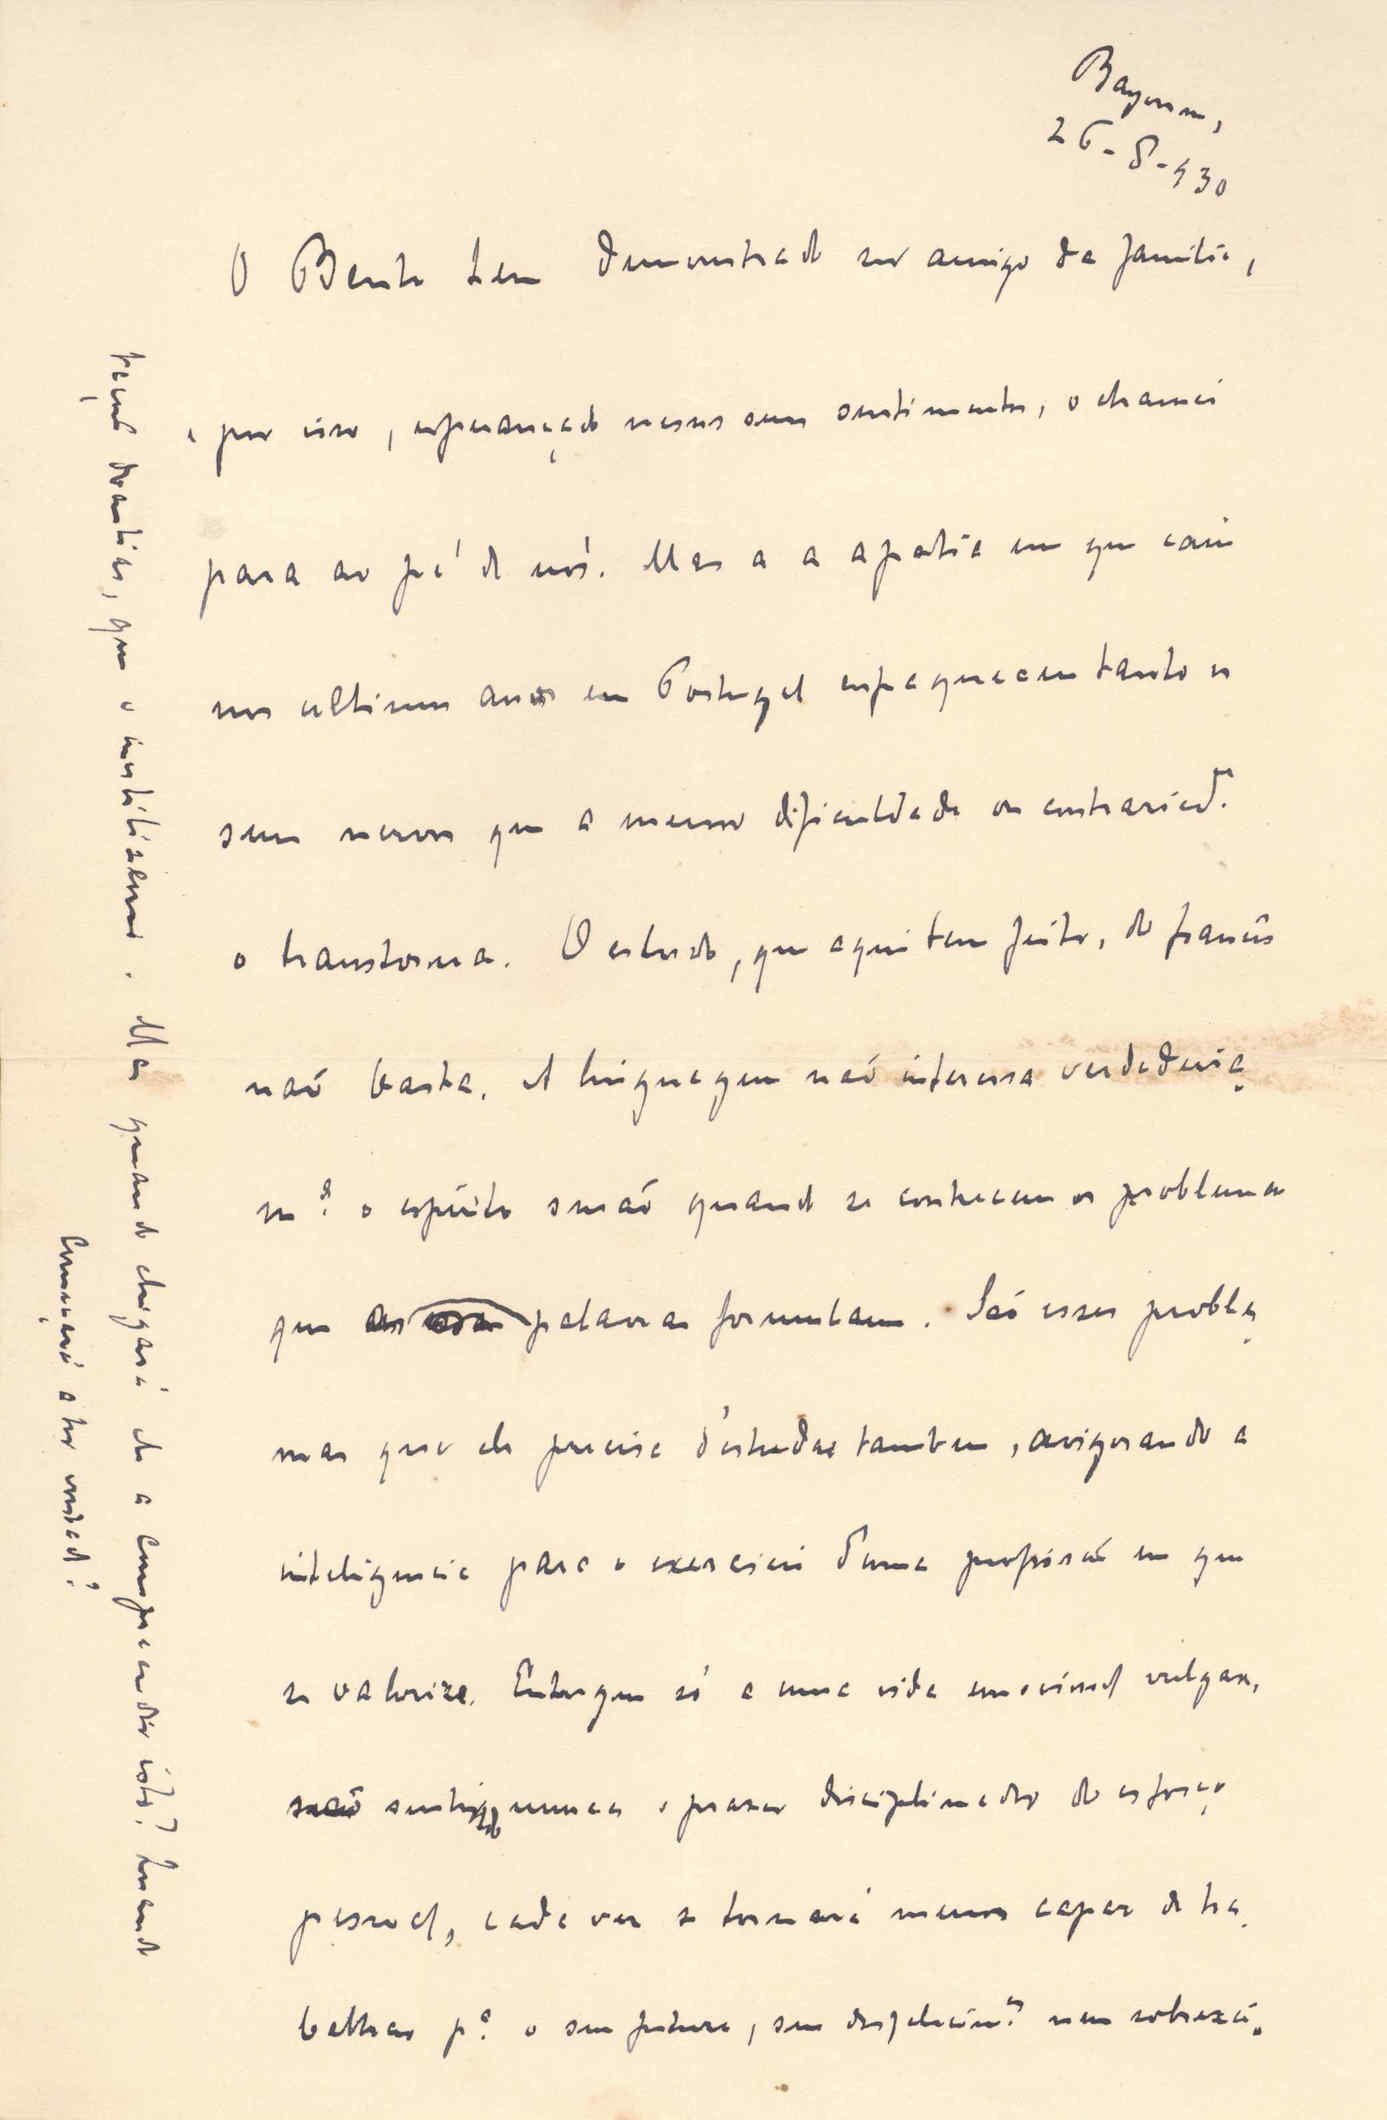 Bayonne,
26-8-930
O Bento tem demonstrado ser amigo da familia,
e por isso, esperançado nesses seus sentimentos, o chamei
para ao pé de nós. Mas a a apatia em que caiu
nos ultimos anos em Portugal enfraqueceu tanto os
seus nervos que a menor dificuldade ou contraried.e
o transtorna. O estudo, que aqui tem feito, do francês
não basta. A linguagem não interessa verdadeira
m.e o espirito senão quando se conhecem os problemas
que as palavras formulam. São esses proble
mas que ele precisa d'estudar tambem, avigorando a
inteligencia para o exercicio d'uma profissão em que
se valorize. Entregue só a uma vida emocional vulgar,
sentindo nunca o prazer disciplinador do esforço
pessoal, cada vez se tornará menos capaz de tra
balhar p.a o seu futuro, sem desfalecim.tos nem sobrexci-
tações doentias, que o inutilizem. Mas quando chegará ele a compreender isto? Quando
Começará a ter vontade?